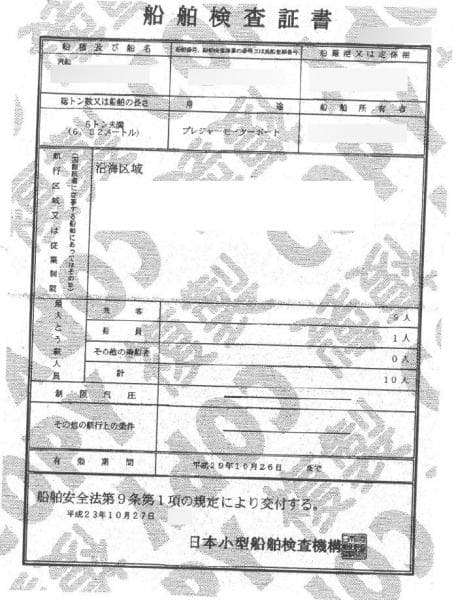 船舶検査証書
船種及び船名
汽船
船舶番号、船舶検査済票の番号又は漁船登録番号
船籍港又は定係港
総トン数又は船舶の長さ
用途
船舶所有者
5トン未満
(6.82メートル)
プレジャーモーターボート
航行区域又は従業制限
沿海区域
最大とう載人員
旅客
9人
船員
1人
その他の乗船者
0人
計
10人
制限汽圧
その他の航行上の条件
有効期間
平成29年10月26日まで
船舶安全法第9条第1項の規定により交付する。
平成23年10月27日
日本小型船舶検査機構
複製
COPY